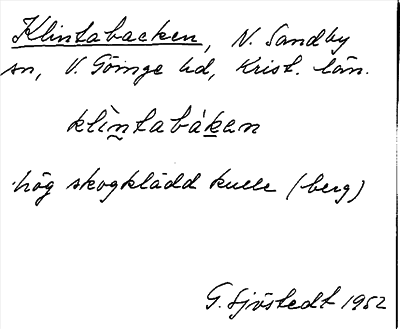 Klintabacken, N. Sandby
sn, V. Göinge hd, Krist. län.
klìn̰tabàk̲an
hög skogklädd kulle (berg)
G. Sjöstedt 1952